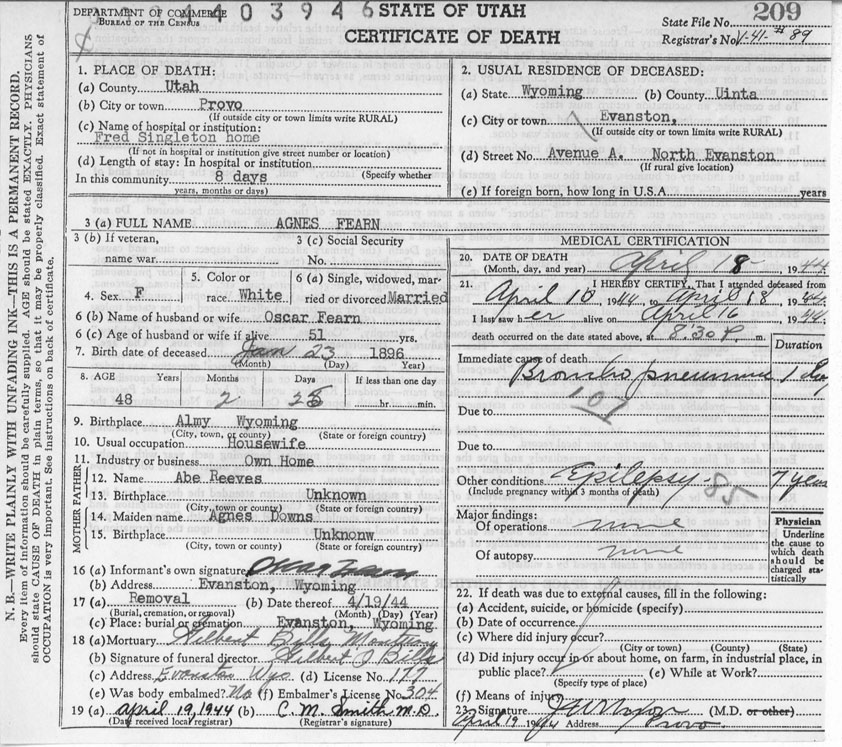 DEPARTMENT OF COMMERCE
BUREAU OF THE CENSUS
4403946
STATE OF UTAH
CERTIFICATE OF DEATH
State File No. 209
Registrar's No. V-41-#89
N. B.—WRITE PLAINLY WITH UNFADING INK—THIS IS A PERMANENT RECORD.
Every item of information should be carefully supplied. AGE should be stated EXACTLY. PHYSICIANS
should state CAUSE OF DEATH in plain terms, so that it may be properly classified. Exact statement of
OCCUPATION is very important. See instructions on back of certificate.
1. PLACE OF DEATH:
(a) County Utah
(b) City or town Provo
(If outside city or town limits write RURAL)
(c) Name of hospital or institution:
Fred Singleton home
(If not in hospital or institution give street number or location)
(d) Length of stay: In hospital or institution
(Specify whether
In this community 8 days
years, months or days)
2. USUAL RESIDENCE OF DECEASED:
(a) State Wyoming (b) County Uinta
(c) City or town Evanston,
(If outside city or town limits write RURAL)
(d) Street No. Avenue A. North Evanston
(If rural give location)
(e) If foreign born, how long in U.S.A. years
3 (a) FULL NAME AGNES FEARN
3 (b) If veteran,
name war
3 (c) Social Security
No.
4. Sex F
5. Color or
race White
6 (a) Single, widowed, mar-
ried or divorced Married
6 (b) Name of husband or wife Oscar Fearn
6 (c) Age of husband or wife if alive 51 yrs.
7. Birth date of deceased Jan 23 1896
(Month) (Day) Year)
8. AGE Years Months Days If less than one day
48 2 hr. min.
9. Birthplace Almy Wyoming
(City, town, or county) (State or foreign country)
10. Usual occupation Housewife
11. Industry or business Own Home
FATHER
12. Name Abe Reeves
13. Birthplace Unknown
(City, town or county) (State or foreign country)
MOTHER
14. Maiden name Agnes Downs
15. Birthplace Unknonw
(City, town or county) (State or foreign country)
16 (a) Informant's own signature Oscar Fearn
(b) Address Evanston, Wyoming
17 (a) Removal (b) Date thereof 4/19/44
(Burial, cremation, or removal) (Month) (Day) (Year)
(c) Place: burial or cremation Evanston, Wyoming
18 (a) Mortuary Hilbert Bills Mortuary
(b) Signature of funeral director Hilbert J Bills
(c) Address Evanston Wyo (d) License No. 177
(e) Was body embalmed? No (f) Embalmer's License No. 304
19 (a) April 19, 1944 (b) C. M. Smith M.D.
(Date received local registrar) (Registrar's signature)
MEDICAL CERTIFICATION
20. DATE OF DEATH
(Month, day, and year) April 18, 1944
21. I HEREBY CERTIFY, That I attended deceased from
April 10, 1944, to April 18, 1944.
I last saw her alive on April 16, 1944.
death occurred on the date stated above, at 8:30 P. m.
Duration
Immediate cause of death
Broncho pneumonia 1 day
107
Due to
Due to
Other conditions Epilepsy - 85 7 years
(Include pregnancy within 3 months of death)
Major findings:
Of operations none
Of autopsy none
Physician
Underline
the cause to
which death
should be
charged sta-
tistically
22. If death was due to external causes, fill in the following:
(a) Accident, suicide, or homicide (specify)
(b) Date of occurrence
(c) Where did injury occur?
(City or town) (County) (State)
(d) Did injury occur in or about home, on farm, in industrial place, in
public place? (e) While at Work?
(Specify type of place)
(f) Means of injury
23. Signature (M.D. or other)
April 19 1944 Address Provo.